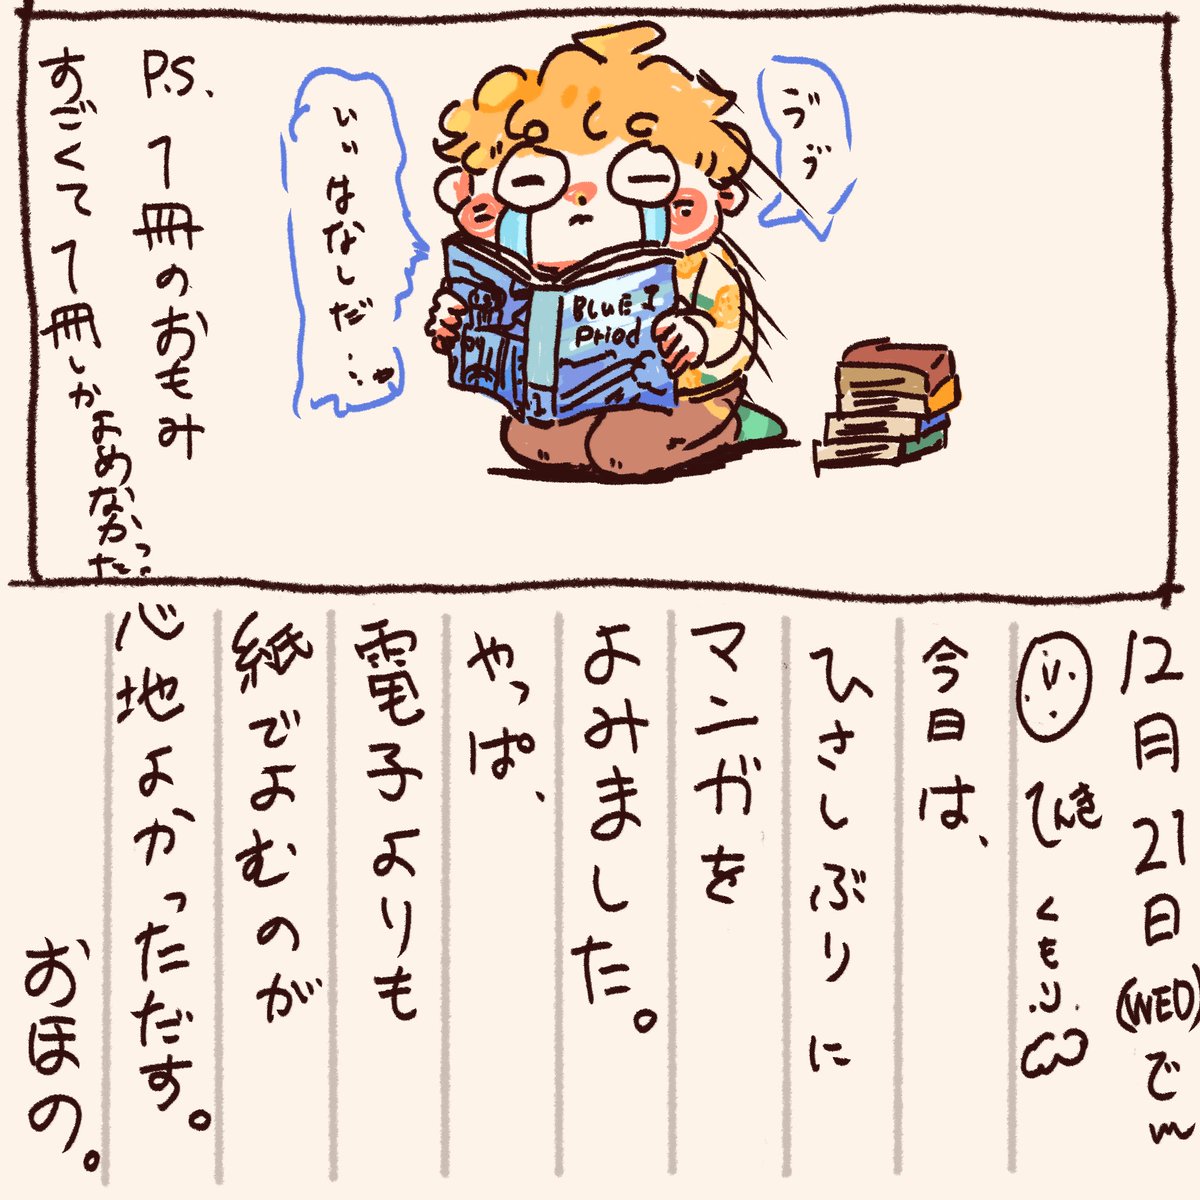 ゔゔ
いいはなしだ…
BLUE I
Priod
1
P.S. 1冊のおもみ
すごくて1冊しかよめなかった…
12月21日(WED)で〜
てんき くもり
今日は、
ひさしぶりに
マンガを
よみました。
やっぱ、
電子よりも
紙でよむのが
心地よかっただす。
おほの。